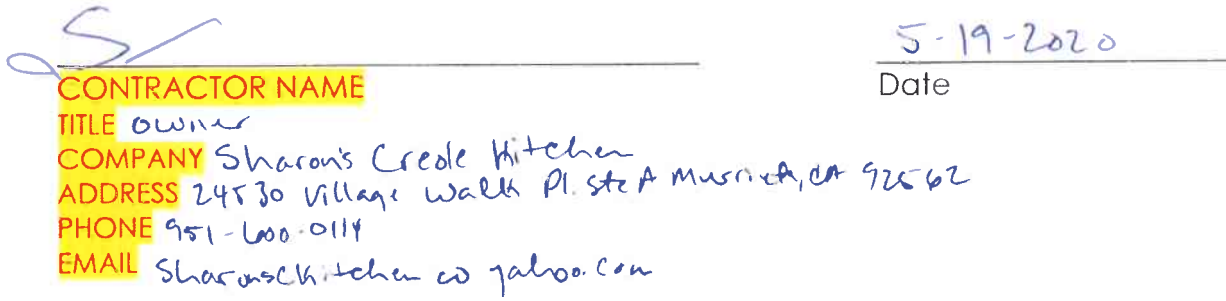 5-19-2020
CONTRACTOR NAME Date
TITLE owner
COMPANY Sharon's Creole Kitchen
ADDRESS 24530 Village Walk Pl. Ste A Murrieta, CA 92562
PHONE 951-600-0114
EMAIL Sharonsckitchen @ yahoo.com